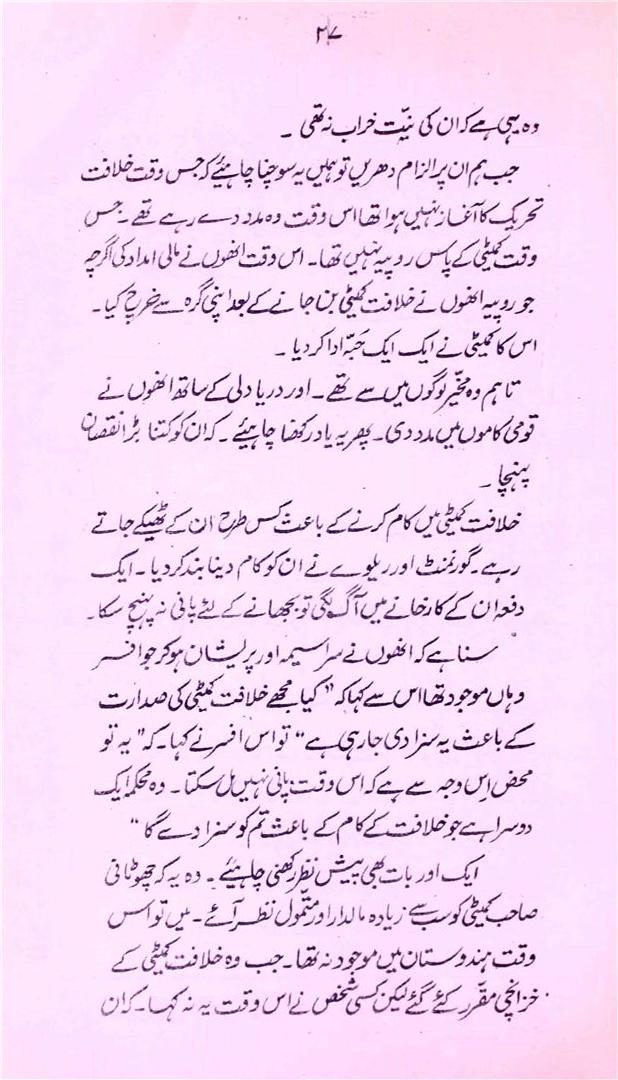 ۲۷
وہ یہی ہے کہ ان کی نیّت خراب نہ تھی ۔
جب ہم ان پر الزام دھریں تو ہمیں یہ سوچنا چاہیئے کہ جس وقت خلافت
تحریک کا آغاز نہیں ہوا تھا اس وقت وہ مدد دے رہے تھے ۔ جس
وقت کمیٹی کے پاس روپیہ نہیں تھا ۔ اس وقت انھوں نے مالی امداد کی اگرچہ
جو روپیہ انھوں نے خلافت کمیٹی بنا جانے کے بعد اپنی گرہ سے خرچ کیا ۔
اس کا کمیٹی نے ایک ایک حَبّہ ادا کر دیا ۔
تاہم وہ مخیّر لوگوں میں سے تھے ۔ اور دریا دلی کے ساتھ انھوں نے
قومی کاموں میں مدد دی ۔ پھر یہ یاد رکھنا چاہیئے ۔ کہ ان کو کتنا بڑا نقصان
پہنچا ۔
خلافت کمیٹی میں کام کرنے کے باعث کس طرح ان کے ٹھیکے جاتے
رہے ۔ گورنمنٹ اور ریلوے نے ان کو کام دینا بند کر دیا ۔ ایک
دفعہ ان کے کارخانے میں آگ لگی تو بجھانے کے لئے پانی نہ پہنچ سکا ۔
سنا ہے کہ انھوں نے سراسیمہ اور پریشان ہو کر جو افسر
وہاں موجود تھا اس سے کہا کہ " کیا مجھے خلافت کمیٹی کی صدارت
کے باعث یہ سزا دی جا رہی ہے " تو اس افسر نے کہا ۔ کہ " یہ تو
محض اِس وجہ سے ہے کہ اس وقت پانی نہیں مل سکتا ۔ وہ محکمہ ایک
دوسرا ہے جو خلافت کے کام کے باعث تم کو سزا دے گا "
ایک اور بات بھی پیش نظر رکھنی چاہیئے ۔ وہ یہ کہ چھوٹانی
صاحب کمیٹی کو سب سے زیادہ مالدار اور متموّل نظر آئے ۔ میں تو اس
وقت ہندوستان میں موجود نہ تھا ۔ جب وہ خلافت کمیٹی کے
خزانچی مقرّر کئے گئے لیکن کسی شخص نے اس وقت یہ نہ کہا ۔ کہ ان